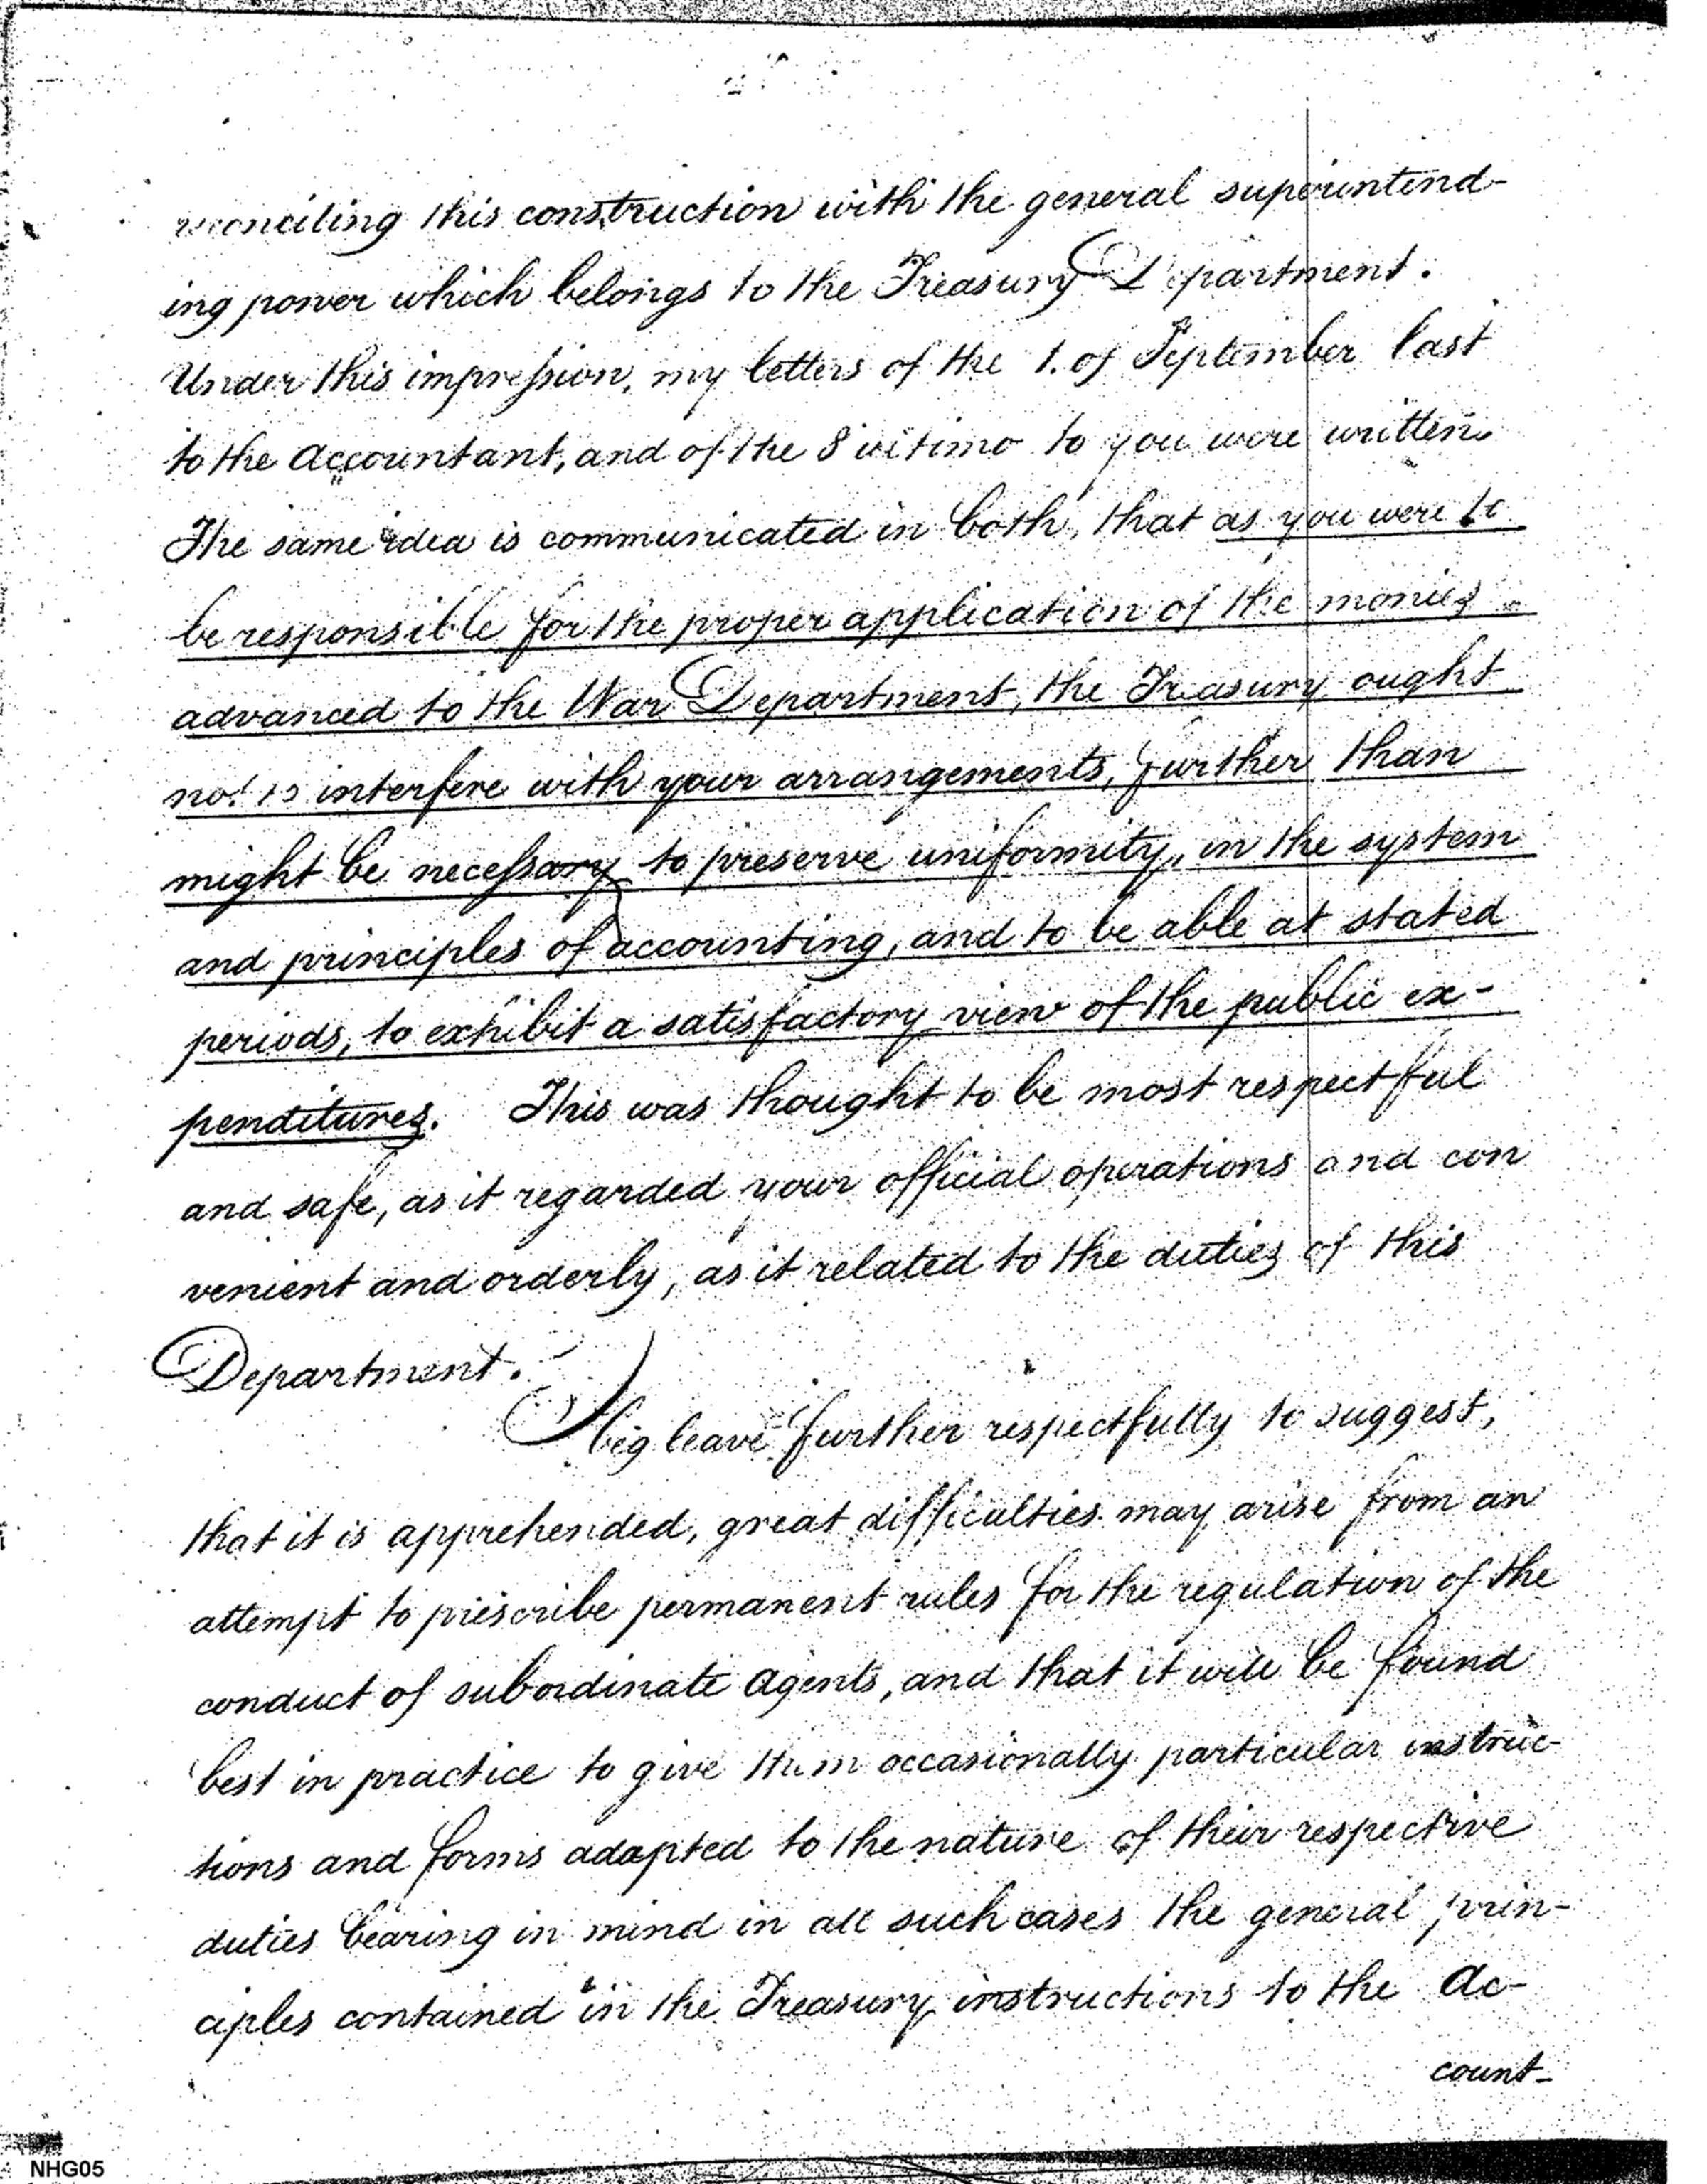 reconciling this construction with the general superintend-
ing power which belongs to the Treasury Department.
Under this impression, my letters of the 1. of September last
to the Accountant, and of the 8 ultimo to you were written.
The same idea is communicated in both, that as you were to
be responsible for the proper application of the monies
advanced to the War Department, the Treasury ought
not to interfere with your arrangements, further than
might be necessary to preserve uniformity, in the system
and principles of accounting, and to be able at stated
periods, to exhibit a satisfactory view of the public ex-
penditures. This was thought to be most respectful
and safe, as it regarded your official operations and con
venient and orderly, as it related to the duties of this
Department.
I beg leave further respectfully to suggest,
that it is apprehended, great difficulties may arise from an
attempt to prescribe permanent rules for the regulation of the
conduct of subordinate Agents, and that it will be found
best in practice to give them occasionally particular instruc-
tions and forms adapted to the nature of their respective
duties bearing in mind in all such cases the general prin-
ciples contained in the Treasury instructions to the Ac-
count-
NHG05